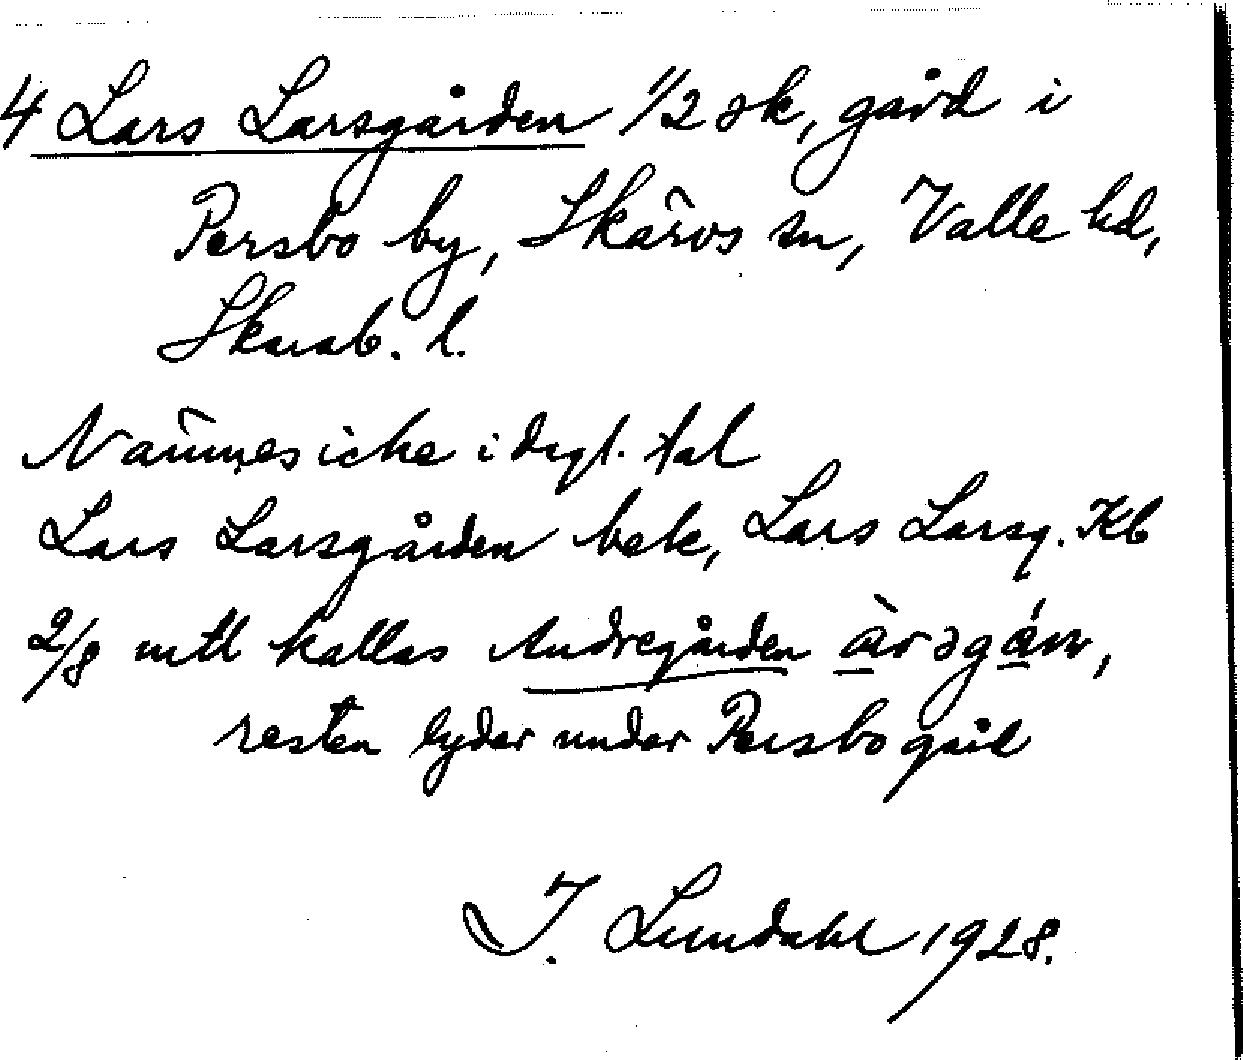 4 Lars Larsgården 1/2 sk, gård i
Persbo by, Skärvs sn, Valle hd,
Skarab. l.
Nämnes icke i dagl. tal
Lars Larsgården bek, Lars Larsg. Kb
2/8 mtl kallas Andregården
resten lyder under Persbogård
I. Lundahl 1928.